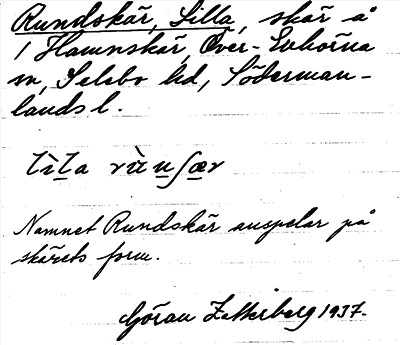 Rundskär, Lilla, skär å
1 Hamnskär, Över-Enhörna
sn, Selebo hd, Söderman-
lands l.
lìl̲a rùn̲ʃæ̲r
Namnet Rundskär anspelar på
skärets form.
Göran Zetterberg 1937.